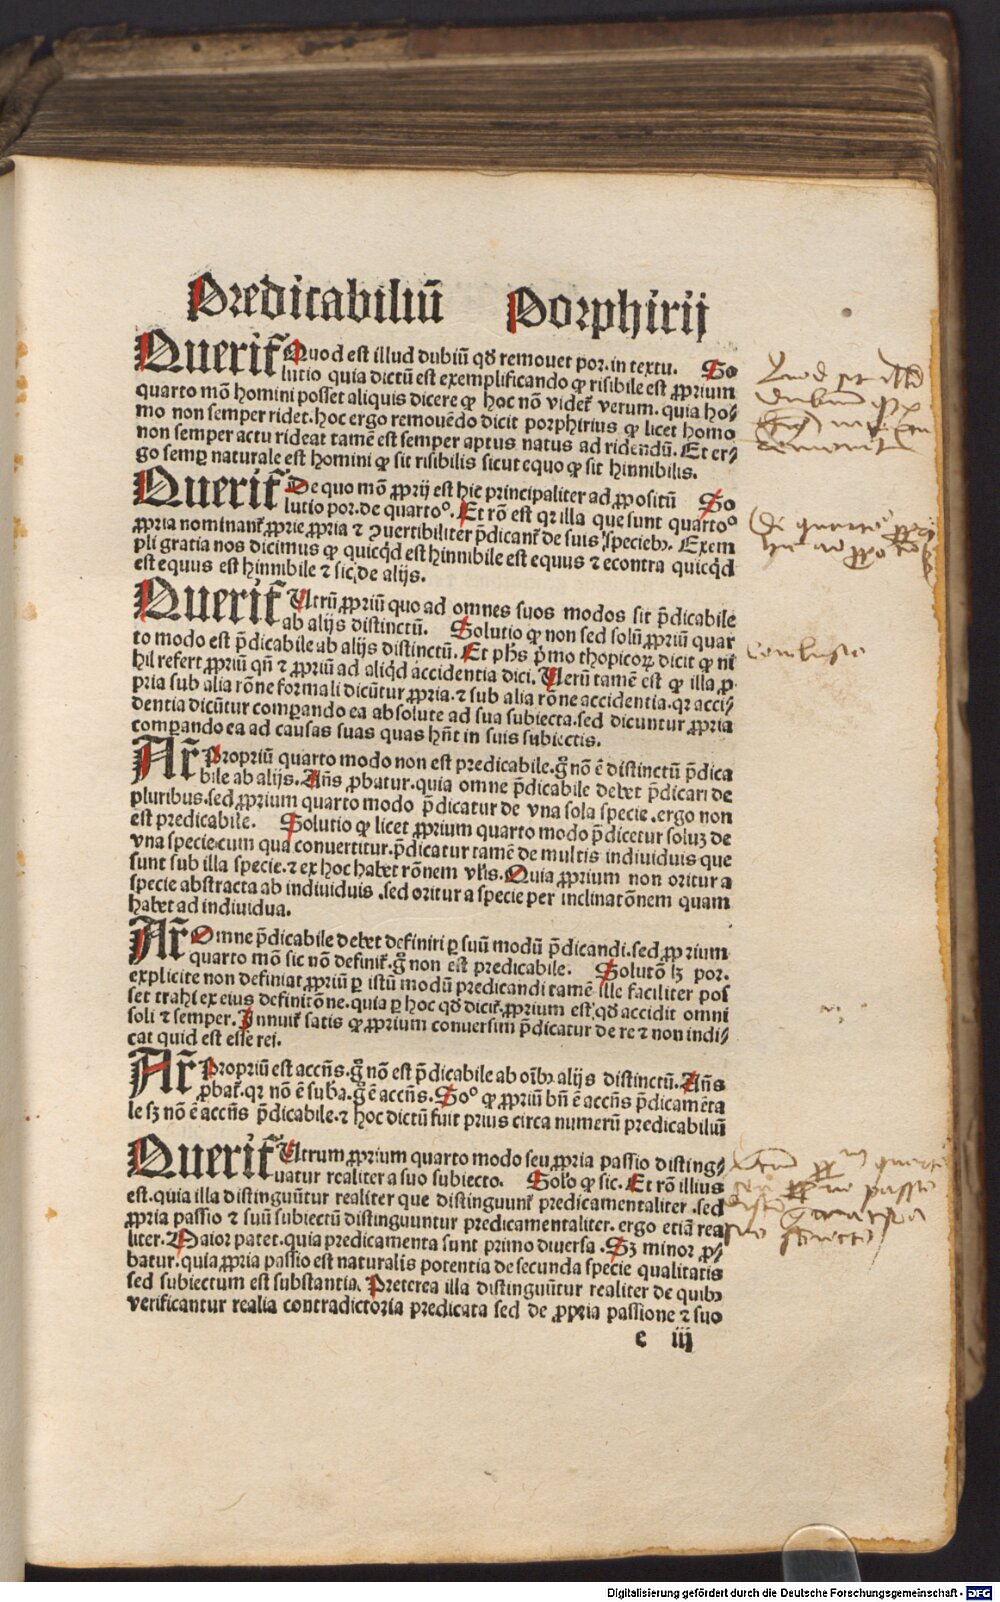 Predicabiliū Porphirij
Querit̄ Quod est illud dubiū qd̄ remouet por. in textu. So
lutio quia dictū est exemplificando ꝙ risibile est ꝓprium
quarto mō homini posset aliquis dicere ꝙ hoc nō videt̄ verum. quia ho⸗
mo non semper ridet. hoc ergo remouēdo dicit porphirius ꝙ licet homo
non semper actu rideat tamē est semper aptus natus ad ridendū. Et er⸗
go semꝑ naturale est homini ꝙ sit risibilis sicut equo ꝙ sit hinnibilis.
Querit̄ De quo mō ꝓprij est hic principaliter ad ꝓpositū So
lutio por. de quartoº. Et rō est qr illa que sunt quartoº
ꝓpria nominant̄ ꝓprie ꝓpria ⁊ ꝯuertibiliter p̄dicant̄ de suis speciebꝫ. Exem
pli gratia nos dicimus ꝙ quicqd̄ est hinnibile est equus ⁊ econtra quicqd̄
est equus est hinnibile ⁊ sic de alijs.
Querit̄ Utrū ꝓpriū quo ad omnes suos modos sit p̄dicabile
ab alijs distinctū. Solutio ꝙ non sed solū ꝓpriū quar
to modo est p̄dicabile ab alijs distinctū. Et ph̄s p̄mo thopicoꝝ dicit ꝙ ni
hil refert ꝓpriū qn̄ ⁊ ꝓpriū ad aliqd̄ accidentia dici. Uerū tamē est ꝙ illa ꝓ
pria sub alia rōne formali dicūtur ꝓpria. ⁊ sub alia rōne accidentia. qr acci⸗
dentia dicūtur comꝑando ea absolute ad sua subiecta. sed dicuntur ꝓpria
comꝑando ea ad causas suas quas hn̄t in suis subiectis.
Ar̄ Propriū quarto modo non est predicabile. gͦ nō ē distinctū p̄dica
bile ab alijs. An̄s ꝓbatur. quia omne p̄dicabile debet p̄dicari de
pluribus. sed ꝓprium quarto modo p̄dicatur de vna sola specie. ergo non
est predicabile. Solutio ꝙ licet ꝓprium quarto modo p̄dicetur soluꝫ de
vna specie. cum qua conuertitur. p̄dicatur tamē de multis indiuiduis que
sunt sub illa specie. ⁊ ex hoc habet rōnem vl̄is. Quia ꝓprium non oritur a
specie abstracta ab indiuiduis. sed oritur a specie per inclinatōnem quam
habet ad indiuidua.
Ar̄ Omne p̄dicabile debet definiri ꝑ suū modū p̄dicandi. sed ꝓprium
quarto mō sic nō definit̄. gͦ non est predicabile. Solutō lꝫ por.
explicite non definiat ꝓpriū ꝑ istū modū predicandi tamē ille faciliter pos
set trahi ex eius definitōne. quia ꝑ hoc qd̄ dicit̄. ꝓprium est qd̄ accidit omni
soli ⁊ semper. Innuit̄ satis ꝙ ꝓprium conuersim p̄dicatur de re ⁊ non indi⸗
cat quid est esse rei.
Ar̄ Propriū est accn̄s. gͦ nō est p̄dicabile ab oībꝫ alijs distinctū. An̄s
ꝓbat̄. qr nō ē sub̄a. gͦ ē accn̄s. Soº ꝙ ꝓpriū bn̄ ē accn̄s p̄dicamēta
le sꝫ nō ē accn̄s p̄dicabile. ⁊ hoc dictū fuit prius circa numerū predicabiliū
Querit̄ Utrum ꝓprium quarto modo seu ꝓpria passio disting⸗
uatur realiter a suo subiecto. Solº ꝙ sic. Et rō illius
est. quia illa distinguūtur realiter que distinguunt̄ predicamentaliter. sed
ꝓpria passio ⁊ suū subiectū distinguuntur predicamentaliter. ergo etiā rea
liter. Maior patet. quia predicamenta sunt primo diuersa. Sꝫ minor ꝓ⸗
batur. quia ꝓpria passio est naturalis potentia de secunda specie qualitatis
sed subiectum est substantia. Preterea illa distinguūtur realiter de quibꝫ
verificantur realia contradictoria predicata sed de ꝓpria passione ⁊ suo
e iij
Quod sit illud
dubium
remouet
Digitalisierung gefördert durch die Deutsche Forschungsgemeinschaft - DFG